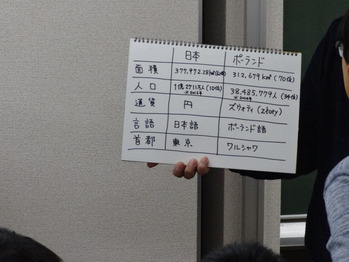 日本 ポーランド
面積 377,972.28km² 312,679km² (70位)
人口 1億2711万人 (10位) 38,485,779人
通貨 円 ズウォティ (złoty)
言語 日本語 ポーランド語
首都 東京 ワルシャワ